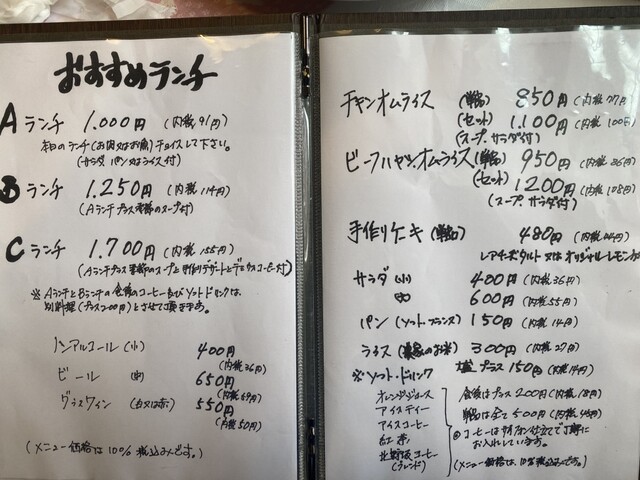 おすすめランチ
A ランチ 1.000円 (内税91円)
本日のランチ(お肉又はお魚)チョイスして下さい。
(サラダ パン又はライス付)
B ランチ 1.250円 (内税114円)
(Aランチプラス季節のスープ付)
C ランチ 1.700円 (内税155円)
(Aランチプラス季節のスープと手作りデザートとデミタスコーヒー付)
※ AランチとBランチの食後のコーヒー及びソフトドリンクは、
別料理(プラス200円)とさせて頂きます。
ノンアルコール (小) 400円
(内税36円)
ビール (中) 650円
(内税59円)
グラスワイン (白又は赤) 550円
(内税50円)
(メニュー価格は10%税込みです。)
チキンオムライス (単品) 850円 (内税77円)
(セット) 1.100円 (内税100円)
(スープ、サラダ付)
ビーフハヤシオムライス (単品) 950円 (内税86円)
(セット) 1200円 (内税108円)
(スープ、サラダ付)
手作りケーキ (単品) 480円 (内税44円)
レアチーズタルト又はオリジナルレモンケ
サラダ (小) 400円 (内税36円)
中 600円 (内税55円)
パン (ソフトフランス) 150円 (内税14円)
ライス (農家のお米) 300円 (内税27円)
※ソフト・ドリンク 大盛プラス150円 (内税14円)
オレンジジュース
アイスティー
アイスコーヒー
紅茶
コーヒー
(ブレンド)
食後はプラス200円 (内税18円)
単品は全て500円 (内税45円)
◎コーヒーはサイフォン仕立てで丁寧に
お入れしています。
(メニュー価格は、10%税込みです。)